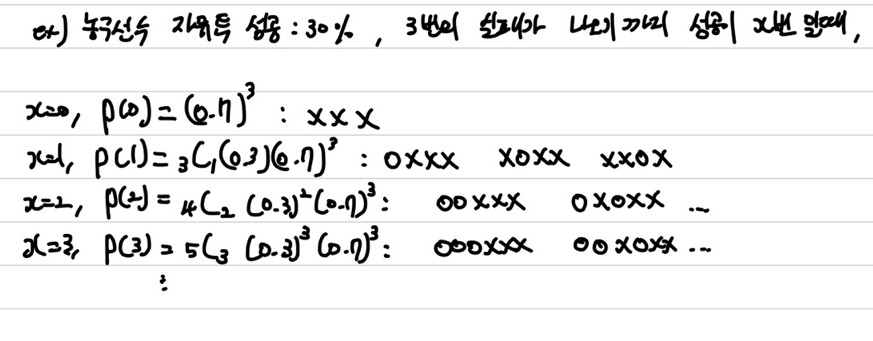 ex) 농구선수 자유투 성공 : 30%, 3번의 실패가 나오기 까지 성공이 x번 일때,
x=0, p(0) = (0.7)³ : x x x
x=1, p(1) = ₃C₁(0.3)(0.7)³ : oxxx xoxx xxox
x=2, p(2) = ₄C₂ (0.3)²(0.7)³ : ooxxx oxoxx ...
x=3, p(3) = ₅C₃ (0.3)³ (0.7)³ : oooxxx ooxoxx ...
⋮